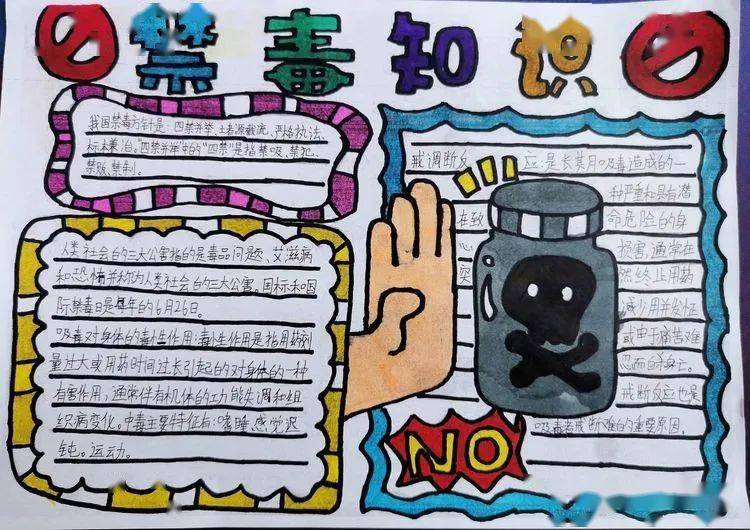 禁毒知识
我国禁毒方针是：四禁并举、土者源截流、严格执法、
标本兼治。"四禁并举"中的"四禁"是指禁吸、禁犯、
禁贩、禁制。
人类社会的三大公害指的是毒品问题，艾滋病
和恐怖并称为人类社会的三大公害。国标和国
际禁毒日是每年的6月26日。
吸毒对身体的毒小生作用：毒小生作用是指用药剂
量过大或用药时间过长引起的对身体的一种
有害作用，通常伴有机体的功能失调和组
织病变化。中毒主要特征有：嗜睡、感觉迟
钝。运动。
戒调断反应：是长其月吸毒造成的一
种严重和具有潜
在致命危险的身
心损害，通常在
突然终止用药
减小用并发症
或由于痛苦难
忍而自杀身亡。
戒断反应也是
吸毒者戒断难的重要原因。
NO